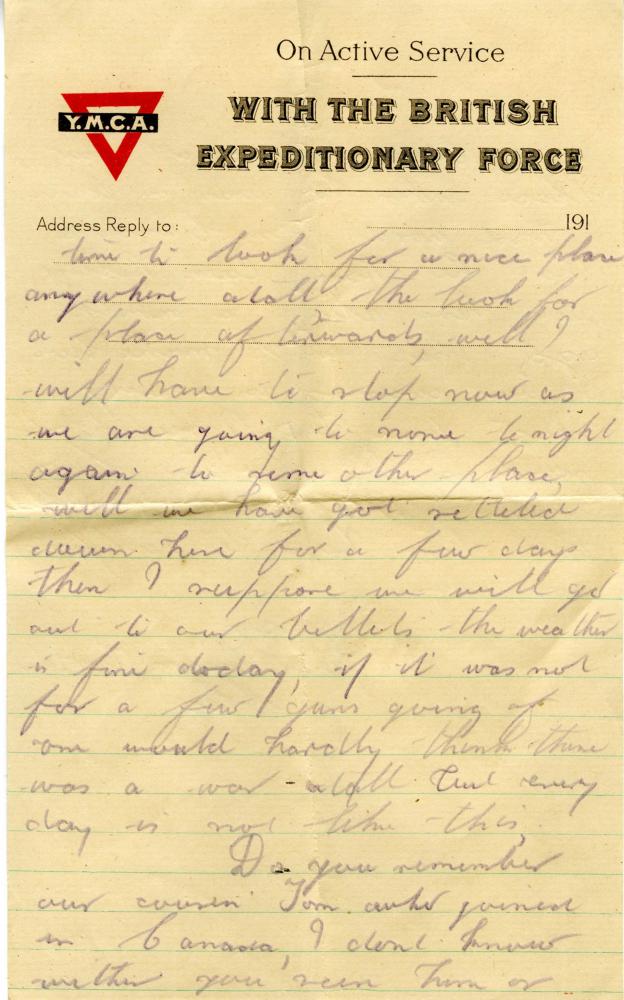 On Active Service
WITH THE BRITISH
Y.M.C.A.
EXPEDITIONARY FORCE
Address Reply to: 191
time to look for a nice place
any where atall the look for
a place afterwards, well I
will have to stop now as
we are going to move to night
again to some other place,
well we have got setteled
down here for a few days
then I suppose we will go
out to our billets the weather
is fine doday, if it was not
for a few guns going of
one would hardly think there
was a war atall but every
day is not like this,
Do you remember
our cousin Tom who joined
in Canada, I dont know
wither you seen him or